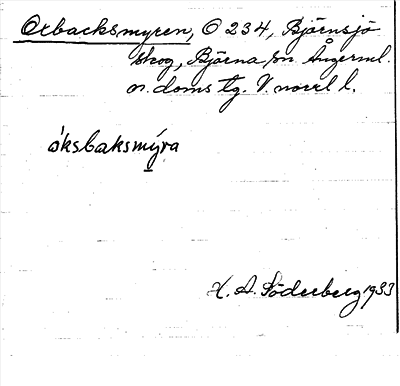 Oxbacksmyren, O 234, Björnsjö
skog, Björna sn. Ångerml.
n. doms tg. V. norrl l.
óksbaksmýra
K. A. Söderberg 1933